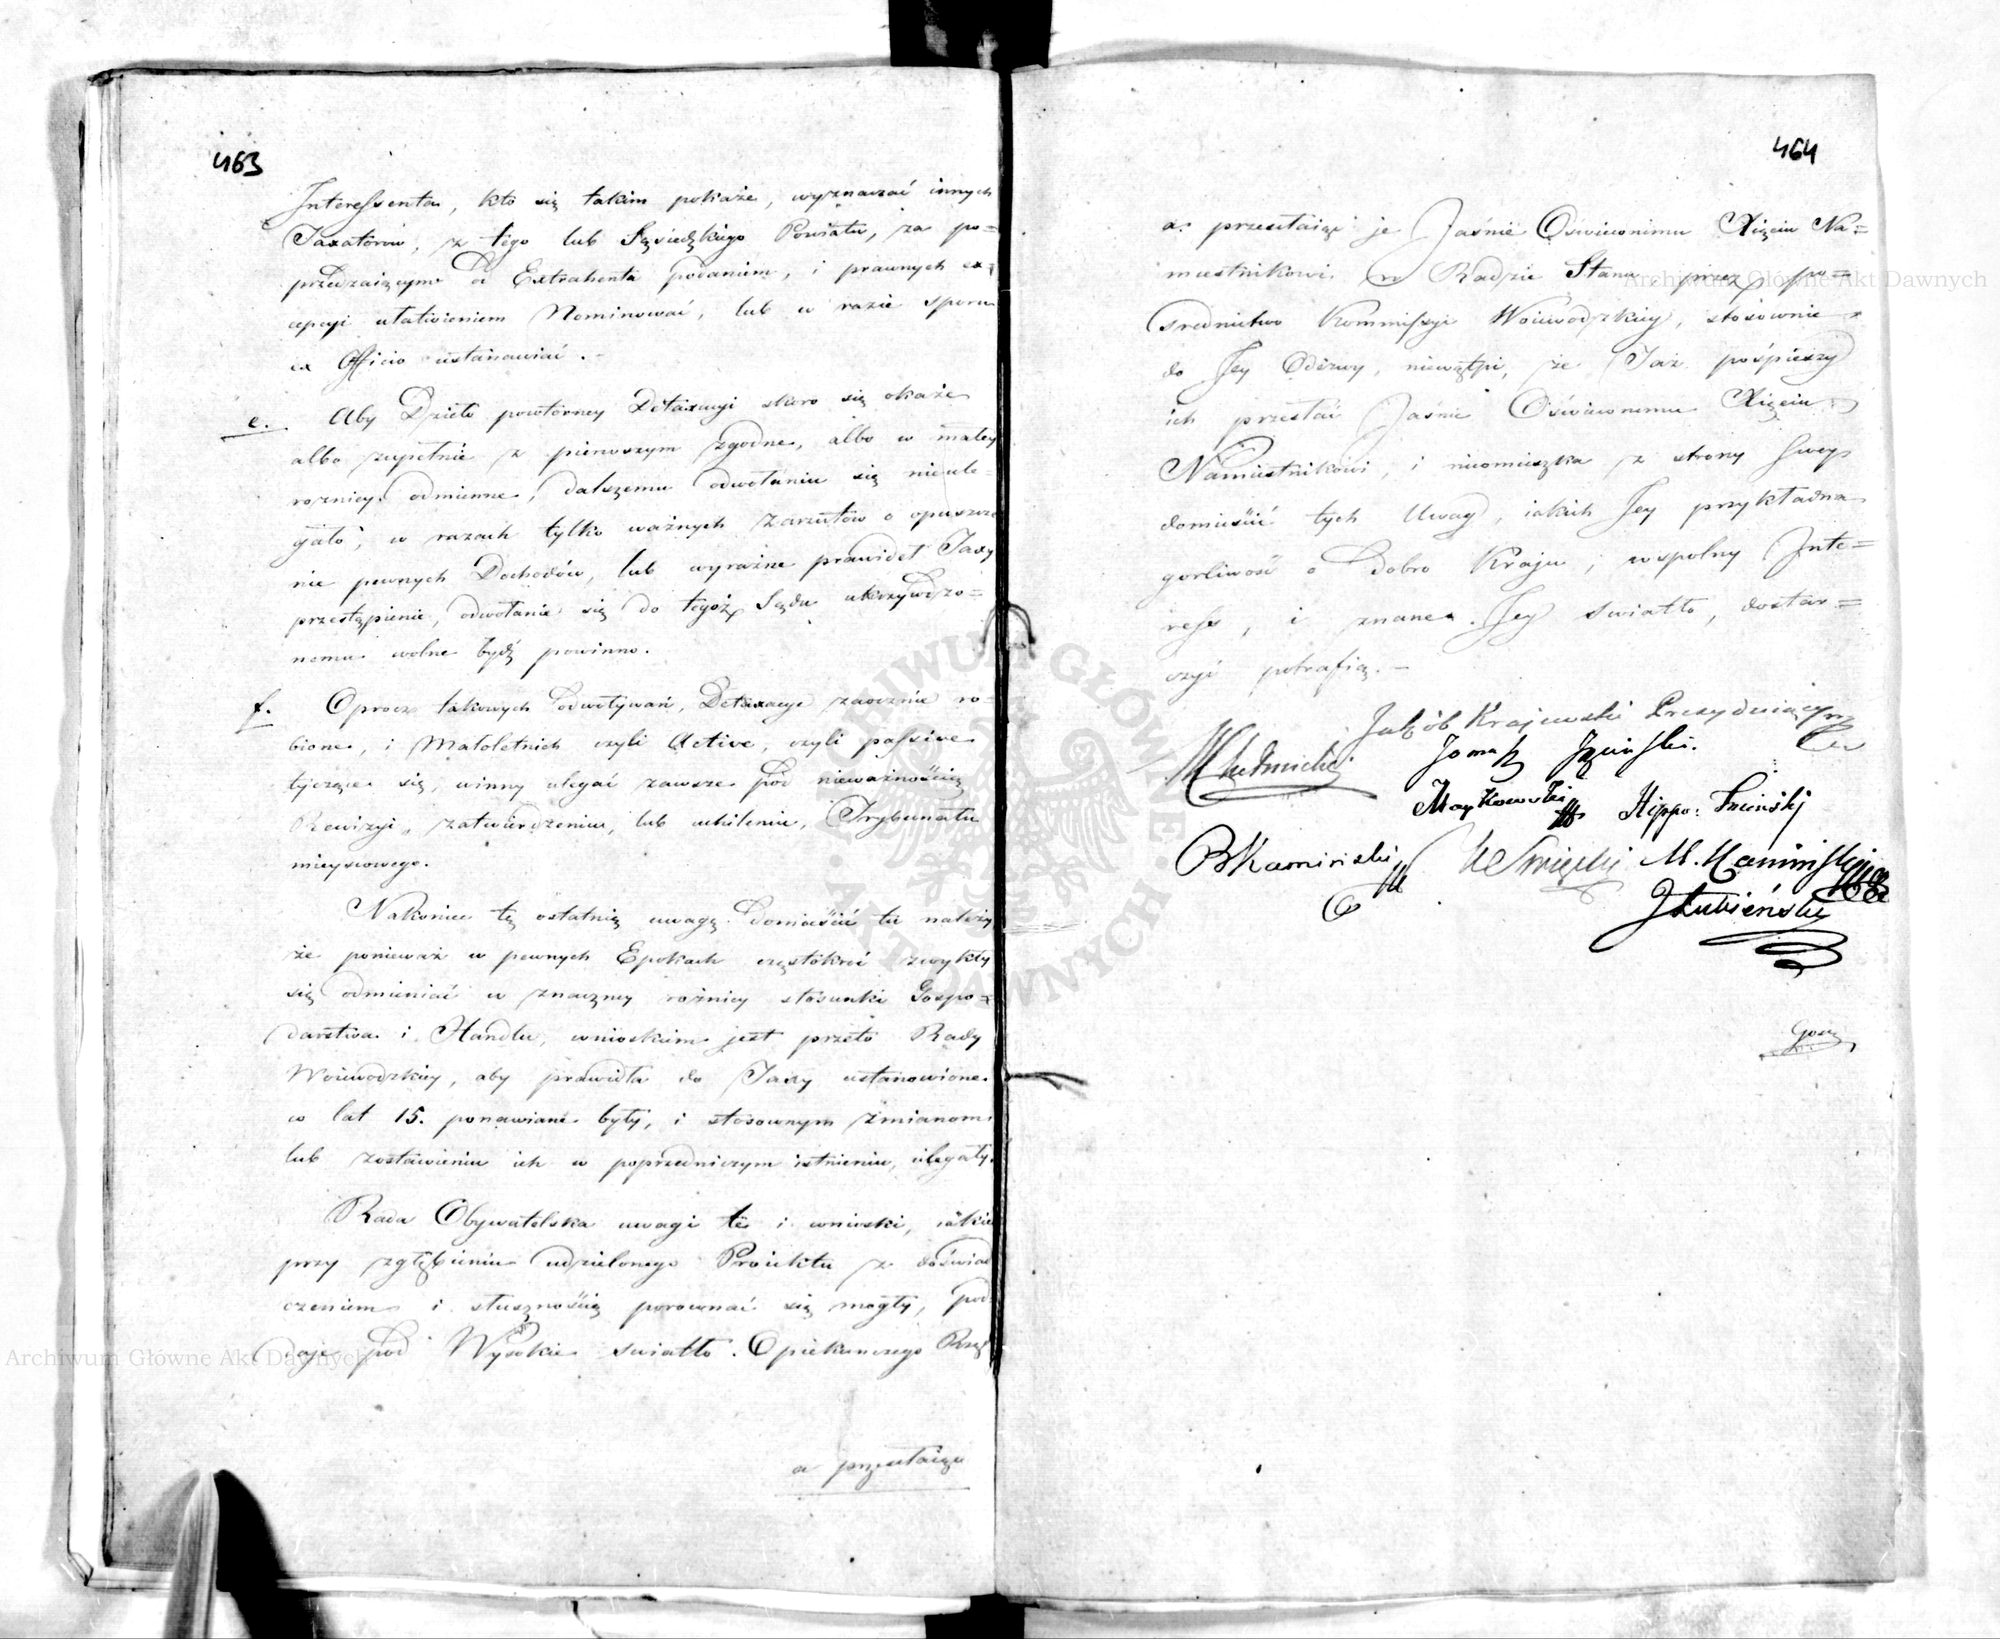 463
Interessenta, kto się takim pokaże, wyznaczać innych
Taxatorów, z tego lub Sąsiedzkiego Powiatu, za po=
przedzaiącym od Extrahenta podaniem, i prawnych ex=
cepcyi ułatwieniem Nominować, lub w razie sporu
ex Officio ustanawiać. -
e. Aby Dzieło powtórney Detaxacyi skoro się okaże
albo zupełnie z pierwszym zgodne, albo w małey
roznicy odmienne, dalszemu odwołaniu się nieule=
gało, w razach tylko ważnych zarzutów o opuszcze
nie pewnych Dochodów, lub wyraźne prawideł Taxy
przestąpienie, odwołanie się do tegoż Sądu
nemu wolne bydź powinno.
f. Oprocz takowych odwoływań, Detaxacye zaocznie ro=
bione, i Małoletnich czyli Active, czyli passive
tyczące się, winny ulegać zawsze pod nieważnością
Rewizyi, zatwierdzeniu, lub uchileniu, Trybunału
mieyscowego.
Nakoniec tę ostatnią uwagę domieścić tu należy
że ponieważ w pewnych Epokach częstokroć zwykły
się odmieniać w znaczney rożnicy stosunki Gospo=
darstwa i Handlu, wnioskiem jest przeto Rady
Woiewodzkiey, aby prawidła do Taxy ustanowione
w lat 15. ponawiane były, i stosownym zmianom
lub zostawieniu ich w poprzedniczym istnieniu, ulegały.
Rada Obywatelska uwagi te i wnioski, iakie
przy zgłębieniu udzielonego Proiektu z doświad
czeniem i słusznością porownać się mogły, pod
daje pod Wysokie światło Opiekunczego Rząd
a przesłaiąc
464
a przesłaiąc je Jaśnie Oświeconemu Xięciu Na=
miestnikowi w Radzie Stanu przez po=
srednictwo Kommissyi Woiewodzkiey, stosownie
do Jey Odezwy, niewątpi, że Taż pośpieszy
ich przesłać Jaśnie Oświeconemu Xięciu
Namiestnikowi, i nieomieszka z strony swey
domieścić tych Uwag, iakich Jey przykładna
gorliwość o dobro Kraju, wspolny Inte=
ress, i znane Jey swiatło, dostar=
czyć potrafią. -
Jakób Krajewski Prezyduiący
Tomasz
Maykowski Hippo:
BKamiński M. Kamiński
JŁubieński